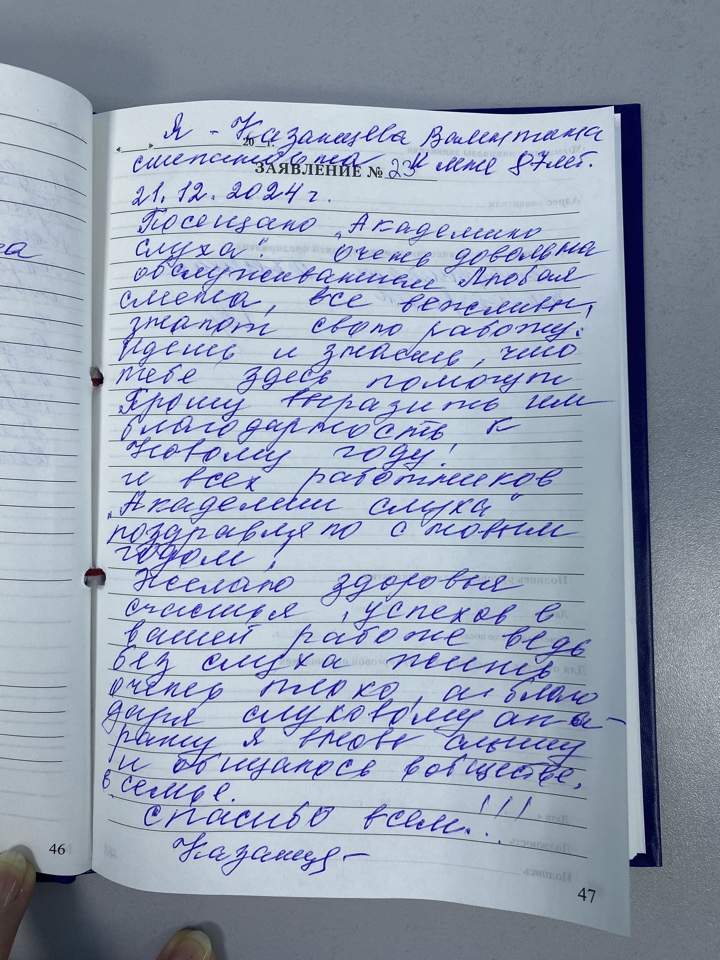 Я - Казанцева Валентина
" " 20 г.
степановна и мне 87 лет.
ЗАЯВЛЕНИЕ № 23
21.12.2024 г.
Посещаю „Академию
слуха". очень довольна
обслуживанием Любая
смена, все вежливы,
знают свою работу.
Идешь и знаешь, что
тебе здесь помогут
Прошу выразить им
благодарность к
Новому году!
и всех работников
„Академии слуха"
поздравляю с новым
годом!
Желаю здоровья
счастья, успехов в
вашей работе ведь
без слуха жить
очень плохо, а благо
даря слуховому аппа-
рату я вновь слышу
и общаюсь в обществе,
в семье.
спасибо всем!!!
Казанц-
46
47